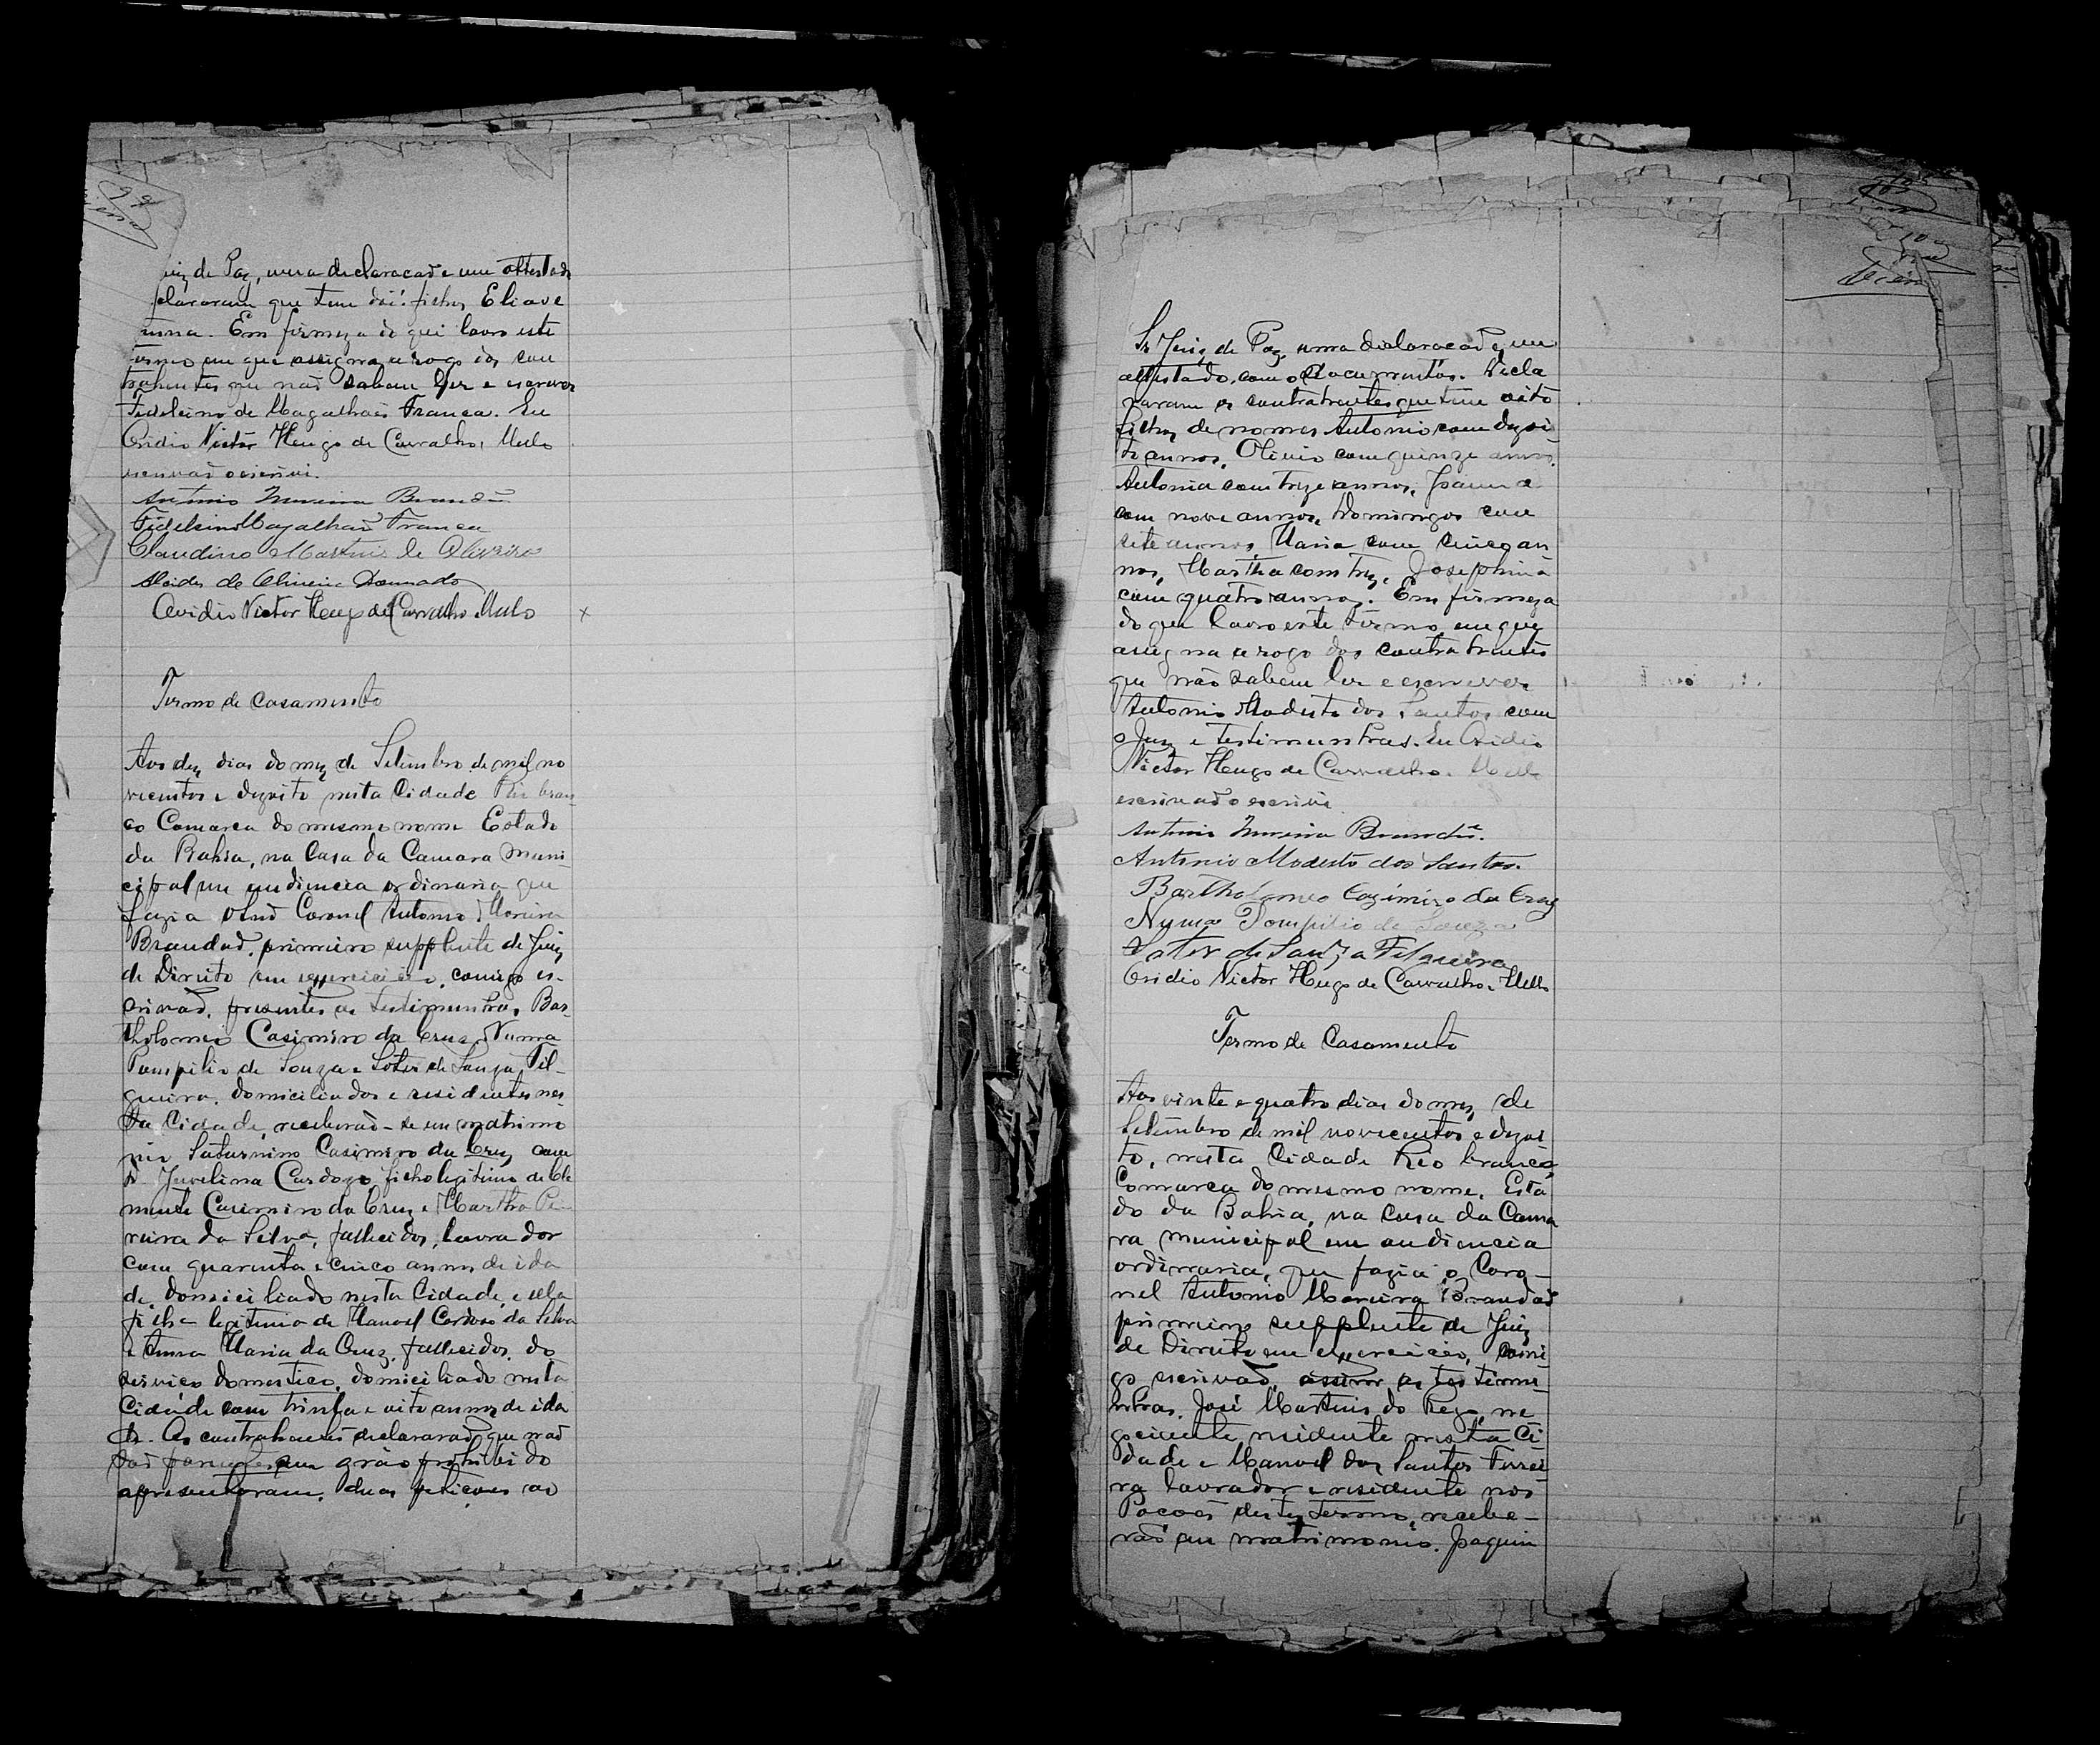 uiz de Paz, uma declaracaõ e um attestado
clararam que tem dois filhos Eliav e
anna. Em firmeza do qui lavro este
termo em que assigna a rogo dos con
trahentes que naõ sabem ler e escrever
Fidelcino de Magalhães Franca. Eu
Ovidio Victor Hugo de Carvalho, Mello
escrivaõ o escrivi.
Antonio Moreira Brandão
Fidelcino Magalhaẽs Franca
Claudino Martins de Oliveira
Alcides de Oliveira Dourado
Ovidio Victor Hugo de Carvalho Mello
Termo de Casamento
Aos dez dias do mez de Setembro de mil no
vecentos e dezoito nesta Cidade Rio bran
co Comarca do mesmo nome Estado
da Bahia, na Casa da Camara Muni
cipal em audiencia ordinaria que
fazia o Coronel Antonio Moreira
Brandaõ, primeiro supplente de Juiz
de Direito em exercicio, comigo es-
crivaõ, presentes as testimunhas, Bar
tholomeo Casimiro da Cruz, Numa
Pompilio de Souza e Soter de Souza Fil-
gueira, domiciliados e residentes nes
ta Cidade, receberaõ-se em matrimo
nio Saturnino Casimiro da Cruz com
D. Juvelina Cardozo, filho legitimo de Cle
mente Casimiro da Cruz e Martha Pe
reira da Silva, fallecidos, lavrador
com quarenta e cinco annos de ida
de, domiciliado nesta Cidade, e ella
filha legitima de Manoel Cardoso da Silva
e Anna Maria da Cruz, fallecidos, do
serviço domestico, domiciliado nesta
Cidade com trinta e oito annos de ida
de. Os contrahentes declararaõ que naõ
saõ parentes em gráo prohibido
apresentaram, duas petições ao
Sr Juiz de Paz, uma declaracaõ e, um
attestado, como documentos. Decla
raram os contratrentes que tem oito
filhos de nomes Antonio com dezoi-
to annos, Olivio com quinze annos,
Antonia com treze annos, Joanna
com nove annos, Domingos com
sete annos, Maria com cinco an
nos, Martha com trez, Josephina
com quatro annos. Em firmeza
do que lavro este termo, em que
assigna a rogo dos contratrentes
que não sabem ler e escrever
Antonio Modesto dos Santos com
o Juiz e testimunhas. Eu Ovidio
Victor Hugo de Carvalho, Mello
escrivaõ o escrivi
Antonio Moreira Brandão.
Antonio Modesto dos Santos.
Bartholomeo Cazimiro da Cruz
Numa Pompilio de Souza
Soter de Souza Filgueira
Ovidio Victor Hugo de Carvalho, Mello
Termo de Casamento
Aos vinte e quatro dias do mez, de
Setembro de mil novecentos e dezoi
to, nesta Cidade Rio branco,
Comarca do mesmo nome, Esta
do da Bahia, na casa da Cama
ra municipal em audiencia
ordinaria, que fazia o Coro-
nel Antonio Moreira Brandaõ
primeiro supplente de Juiz
de Direito em exercicio, comi
go escrivaõ, as testimu-
nhas, José Martins do Rego, ne
gociente residente nesta Ci-
dade e Manoel dos Santos Ferrei
ra lavrador e residente nos
Pocoes deste termo, recebe-
raõ em matrimonio. Joaquim